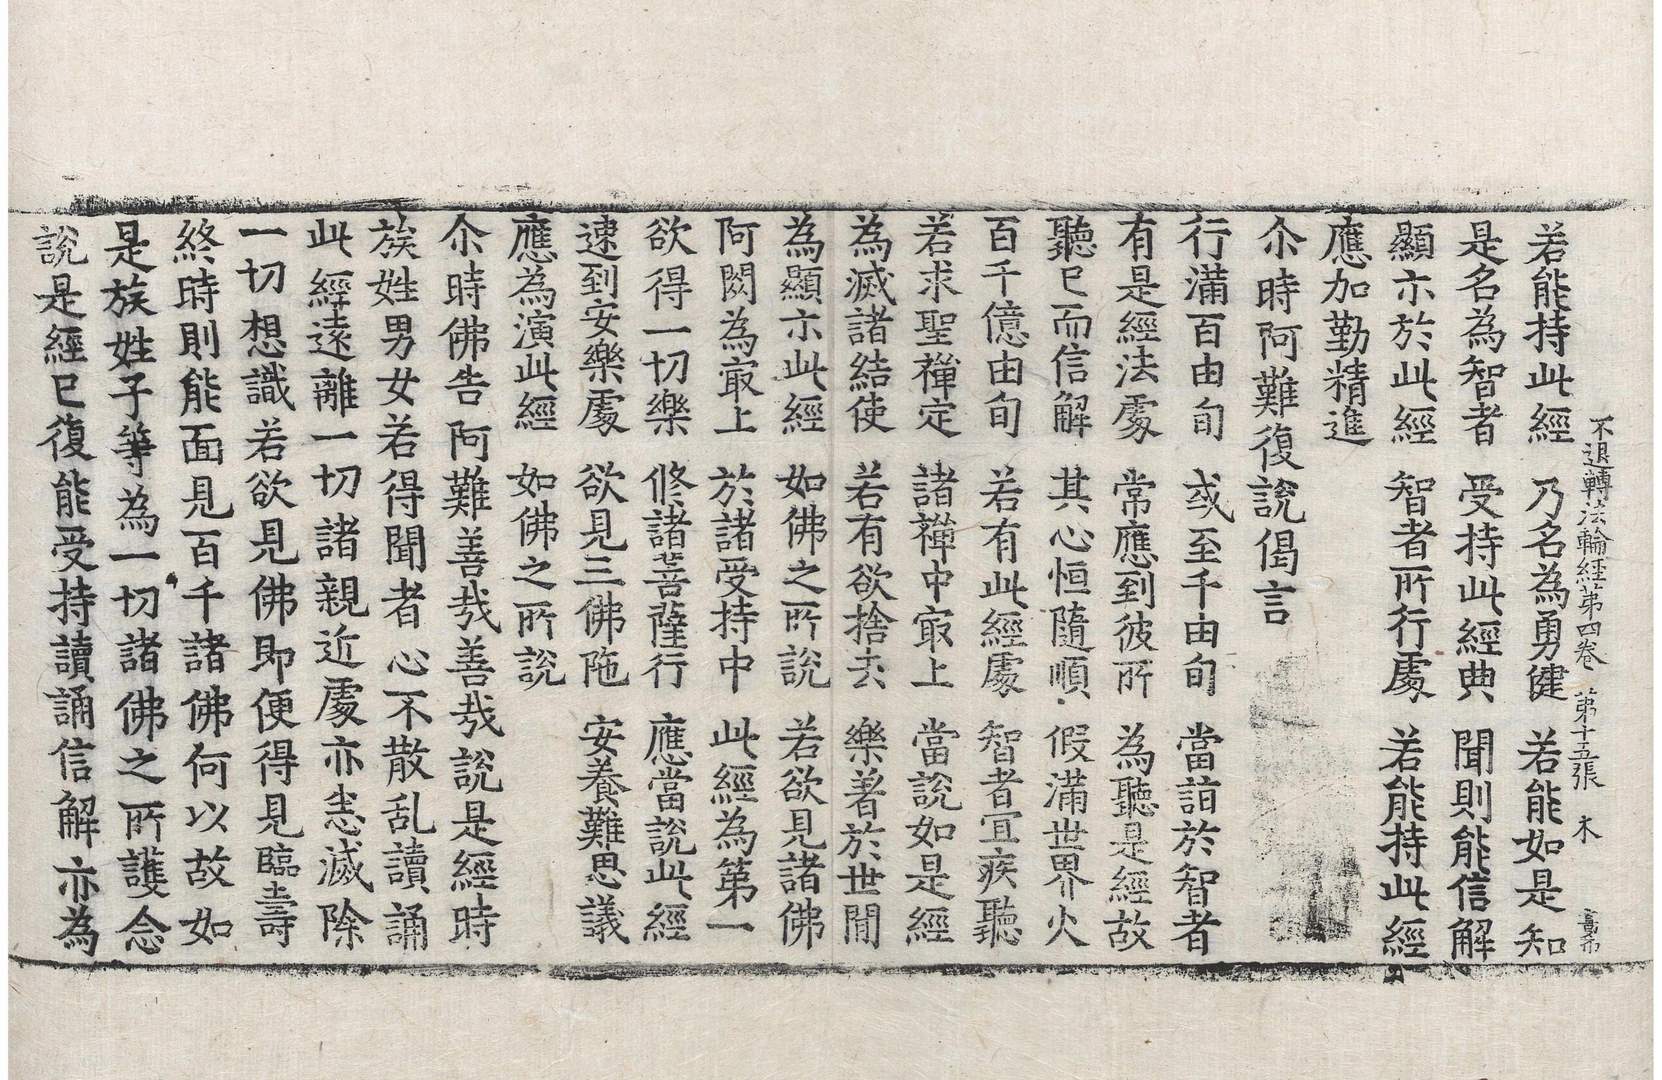 不退轉法輪經第四卷　第十五張　木
若能持此經　乃名為勇健　若能如是知
是名為智者　受持此經典　聞則能信解
顯示於此經　智者所行處　若能持此經
應加勤精進
尒時阿難復說偈言
行滿百由旬　或至千由旬　當詣於智者
有是經法處　常應到彼所　為聽是經故
聽已而信解　其心恒隨順　假滿世界火
百千億由旬　若有此經處　智者宜疾聽
若求聖禪定　諸禪中㝡上　當說如是經
為滅諸結使　若有欲捨去　樂著於世間
為顯示此經　如佛之所說　若欲見諸佛
阿閦為㝡上　於諸受持中　此經為第一
欲得一切樂　修諸菩薩行　應當說此經
速到安樂處　欲見三佛陁　安養難思議
應為演此經　如佛之所說
尒時佛告阿難善㢤善㢤說是經時
族姓男女若得聞者心不散乱讀誦
此經遠離一切諸親近處亦悉滅除
一切想識若欲見佛即便得見臨壽
終時則能面見百千諸佛何以故如
是族姓子等為一切諸佛之所護念
說是經已復能受持讀誦信解亦為